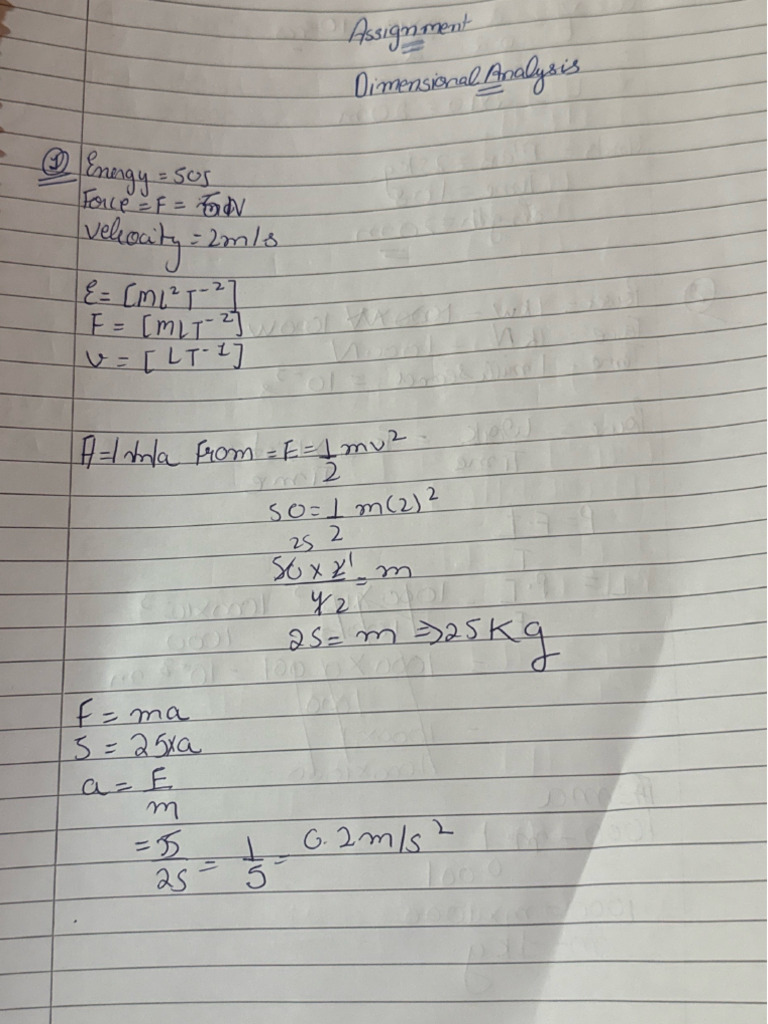 Assignment
Dimensional Analysis
① Energy = 50J
Force = F = N
Velocity = 2m/s
E = [ML²T⁻²]
F = [MLT⁻²]
v = [LT⁻¹]
From = E = 1/2 mv²
50 = 1/2 m(2)²
25
50 x 2 1 / 4 2 = m
25 = m ⇒ 25 Kg
F = ma
5 = 25xa
a = F/m
= 5/25 = 1/5 = 0.2m/s²